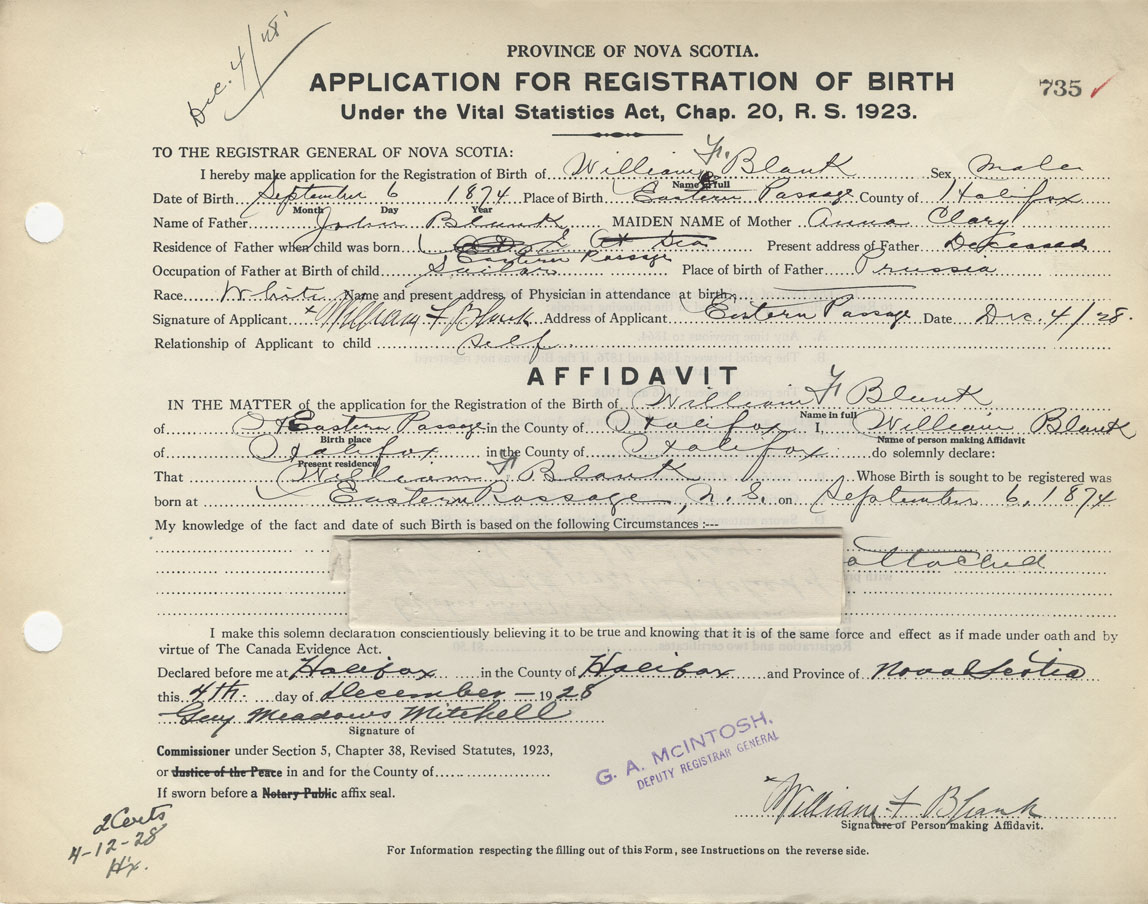 Dec. 4/28
PROVINCE OF NOVA SCOTIA.
APPLICATION FOR REGISTRATION OF BIRTH
735
Under the Vital Statistics Act, Chap. 20, R. S. 1923.
TO THE REGISTRAR GENERAL OF NOVA SCOTIA:
I hereby make application for the Registration of Birth of William F. Blank Sex Male
Name in full
Date of Birth September 6 1874 Place of Birth Eastern Passage County of Halifax
Month Day Year
Name of Father John Blank MAIDEN NAME of Mother Anna Clary
Residence of Father when child was born At Sea Present address of Father Deceased
Eastern Passage
Occupation of Father at Birth of child Sailor Place of birth of Father Prussia
Race White Name and present address of Physician in attendance at birth
Signature of Applicant x William F Blank Address of Applicant Eastern Passage Date Dec. 4/28.
Relationship of Applicant to child Self
AFFIDAVIT
IN THE MATTER of the application for the Registration of the Birth of William F Blank
Name in full
of Eastern Passage in the County of Halifax I, William Blank
Birth place Name of person making Affidavit
of Halifax in the County of Halifax do solemnly declare:
Present residence
That William F Blank Whose Birth is sought to be registered was
born at Eastern Passage, N.S. on September 6, 1874
My knowledge of the fact and date of such Birth is based on the following Circumstances :---
attached
I make this solemn declaration conscientiously believing it to be true and knowing that it is of the same force and effect as if made under oath and by
virtue of The Canada Evidence Act.
Declared before me at Halifax in the County of Halifax and Province of Nova Scotia
this 4th. day of December — 1928
Guy Meadows Mitchell
Signature of
Commissioner under Section 5, Chapter 38, Revised Statutes, 1923,
or Justice of the Peace in and for the County of
If sworn before a Notary Public affix seal.
G. A. McINTOSH.
DEPUTY REGISTRAR GENERAL
x William F Blank
Signature of Person making Affidavit.
2 Certs
4-12-28
Hx.
For Information respecting the filling out of this Form, see Instructions on the reverse side.